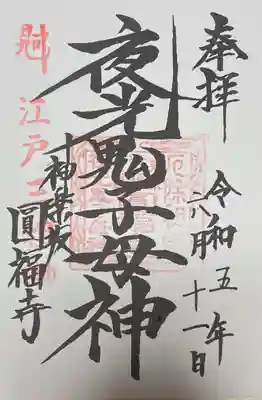 奉拝
令和五年
月十一日
夜光鬼子母神
神楽坂
圓福寺
江戸三
厄除